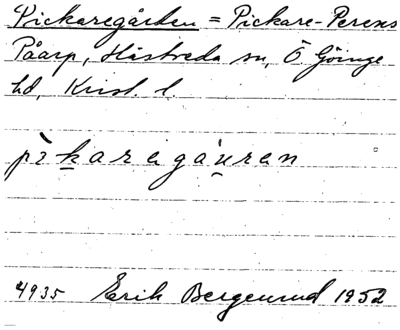 Pickaregården = Pickare-Perens
Påarp, Hästveda sn, Ö Göinge
hd, Krist. l.
pìkaregáuren
4935 Erik Bergenrud 1952